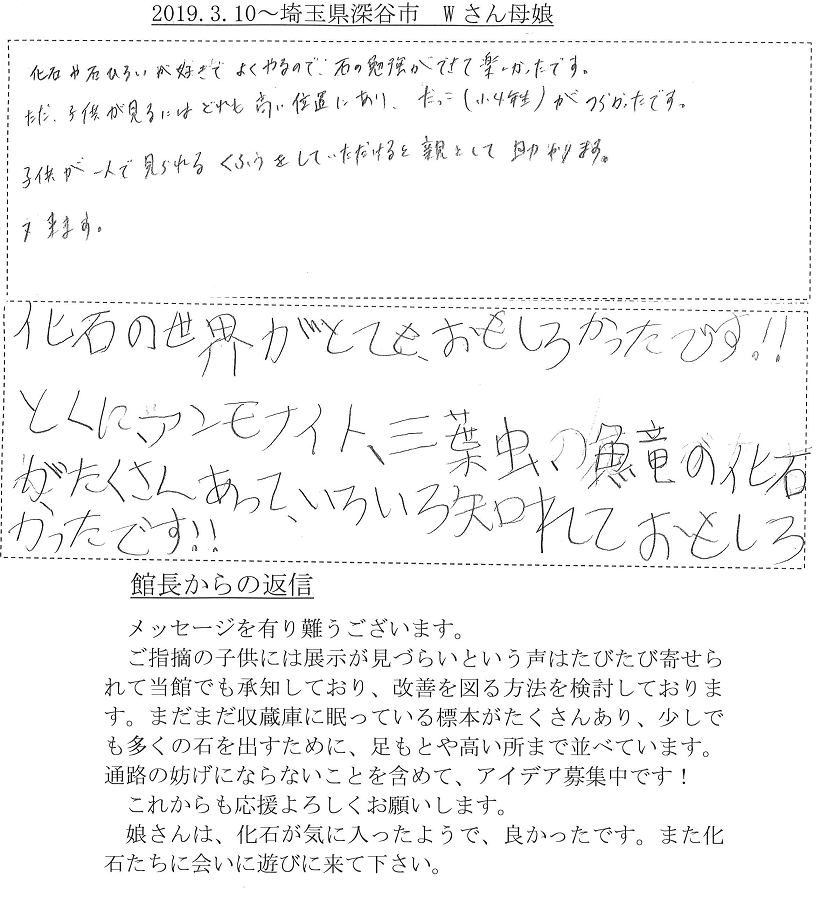 2019.3.10～埼玉県深谷市　Wさん母娘
化石や石ひろいが好きでよくやるので、石の勉強ができて楽しかったです。
ただ、子供が見るにはどれも高い位置にあり、だっこ(小4生)がつらかったです。
子供が一人で見られるくふうをしていただけると親として助かります。
又来ます。
化石の世界がとても、おもしろかったです!!
とくに、アンモナイト、三葉虫、の魚竜の化石
がたくさんあって、いろいろ知れておもしろ
かったです!!
館長からの返信
メッセージを有り難うございます。
ご指摘の子供には展示が見づらいという声はたびたび寄せら
れて当館でも承知しており、改善を図る方法を検討しておりま
す。まだまだ収蔵庫に眠っている標本がたくさんあり、少しで
も多くの石を出すために、足もとや高い所まで並べています。
通路の妨げにならないことを含めて、アイデア募集中です！
これからも応援よろしくお願いします。
娘さんは、化石が気に入ったようで、良かったです。また化
石たちに会いに遊びに来て下さい。